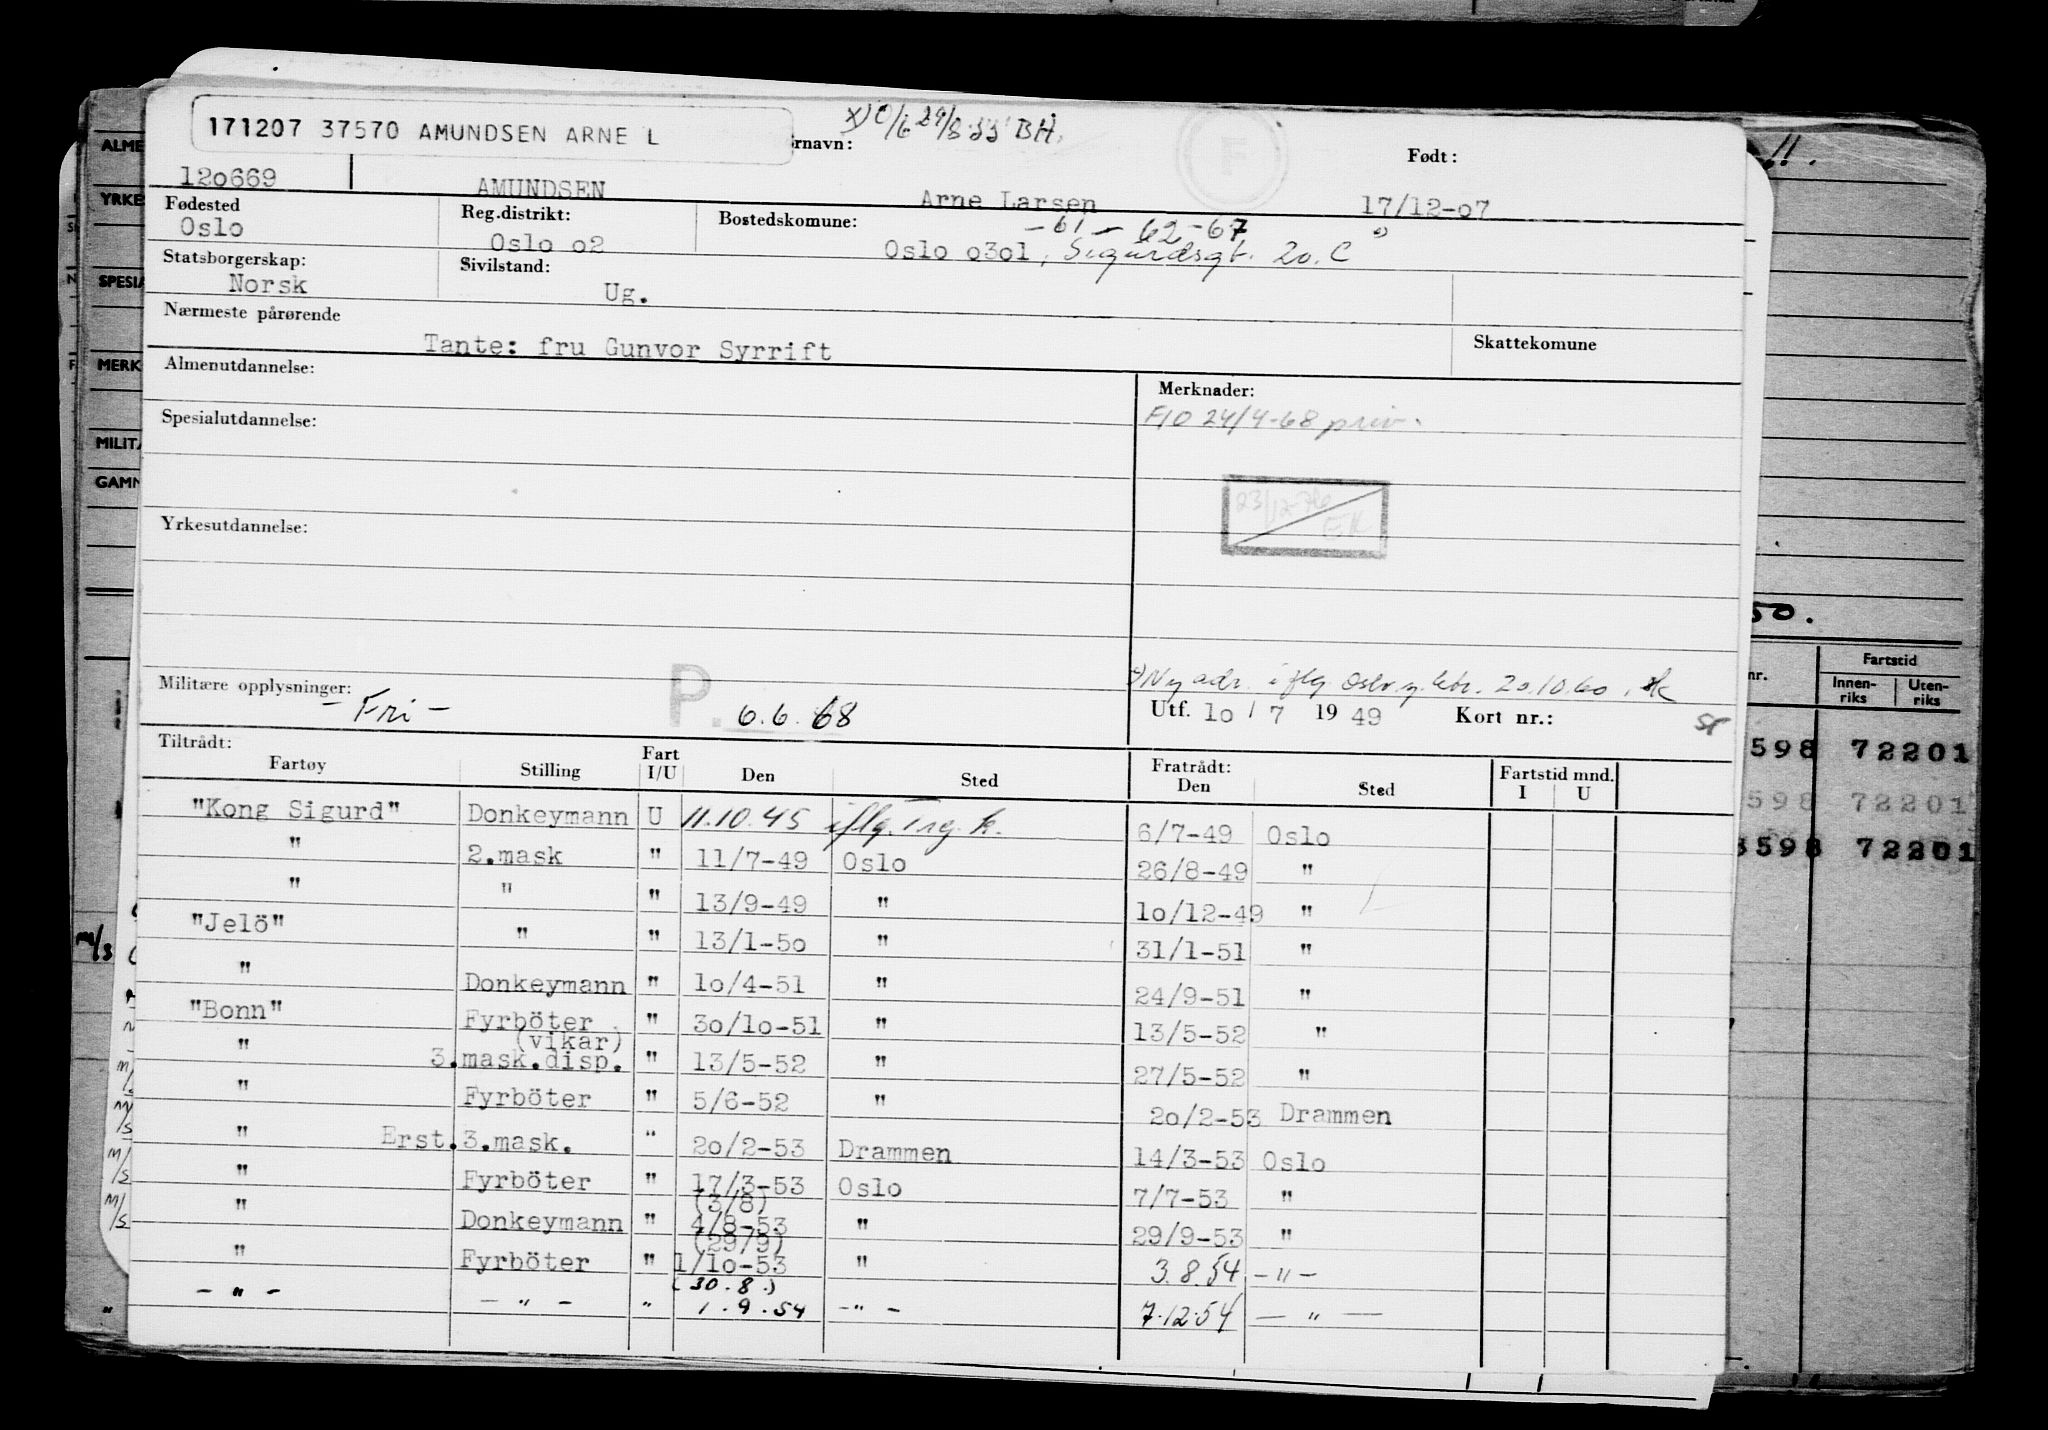 171207 37570 AMUNDSEN ARNE L
BH.
rnavn: Født:
12o669 AMUNDSEN Arne Larsen 17/12-o7
Fødested Reg.distrikt: Bostedskomune: -61 - 62-67
Oslo Oslo o2 Oslo o3o1, Sigurdsgt. 20. C
Statsborgerskap: Sivilstand:
Norsk Ug.
Nærmeste pårørende Skattekomune
Tante: fru Gunvor Syrrift
Almenutdannelse: Merknader:
Spesialutdannelse: F10 24/4-68 priv.
23/12-76
EK
Yrkesutdannelse:
Militære opplysninger: P.
- Fri - 6.6.68
Ny adr. iflg Oslo 20.10.60
Utf. 1o / 7 19 49 Kort nr.:
Tiltrådt: Fratrådt:
Fartøy Stilling Fart I/U Den Sted Den Sted Fartstid mnd. I U
"Kong Sigurd" Donkeymann U 11.10.45 iflg. Trg. k. 6/7-49 Oslo
" 2.mask " 11/7-49 Oslo 26/8-49 "
" " " 13/9-49 " 1o/12-49 "
"Jelö" " " 13/1-5o " 31/1-51 "
" Donkeymann " 1o/4-51 " 24/9-51 "
"Bonn" Fyrböter " 3o/1o-51 " 13/5-52 "
(vikar)
" 3.mask.disp. " 13/5-52 " 27/5-52 "
" Fyrböter " 5/6-52 " 2o/2-53 Drammen
" Erst.3.mask. " 2o/2-53 Drammen 14/3-53 Oslo
" Fyrböter " 17/3-53 Oslo 7/7-53 "
(3/8)
" Donkeymann " 4/8-53 " 29/9-53 "
(29/9)
" Fyrböter " 1/1o-53 " 3.8.54 - " -
(30.8.)
- " - - " - " 1.9.54 - " - 7.12.54 - " -
ALME
YRKE
SPESIA
MERK
MILITÆ
GAMM
m/s
m/s
m/s
m/s
m/s
11.
50.
nr. Fartstid
Innen-riks Uten-riks
598 72201
598 72201
3598 72201